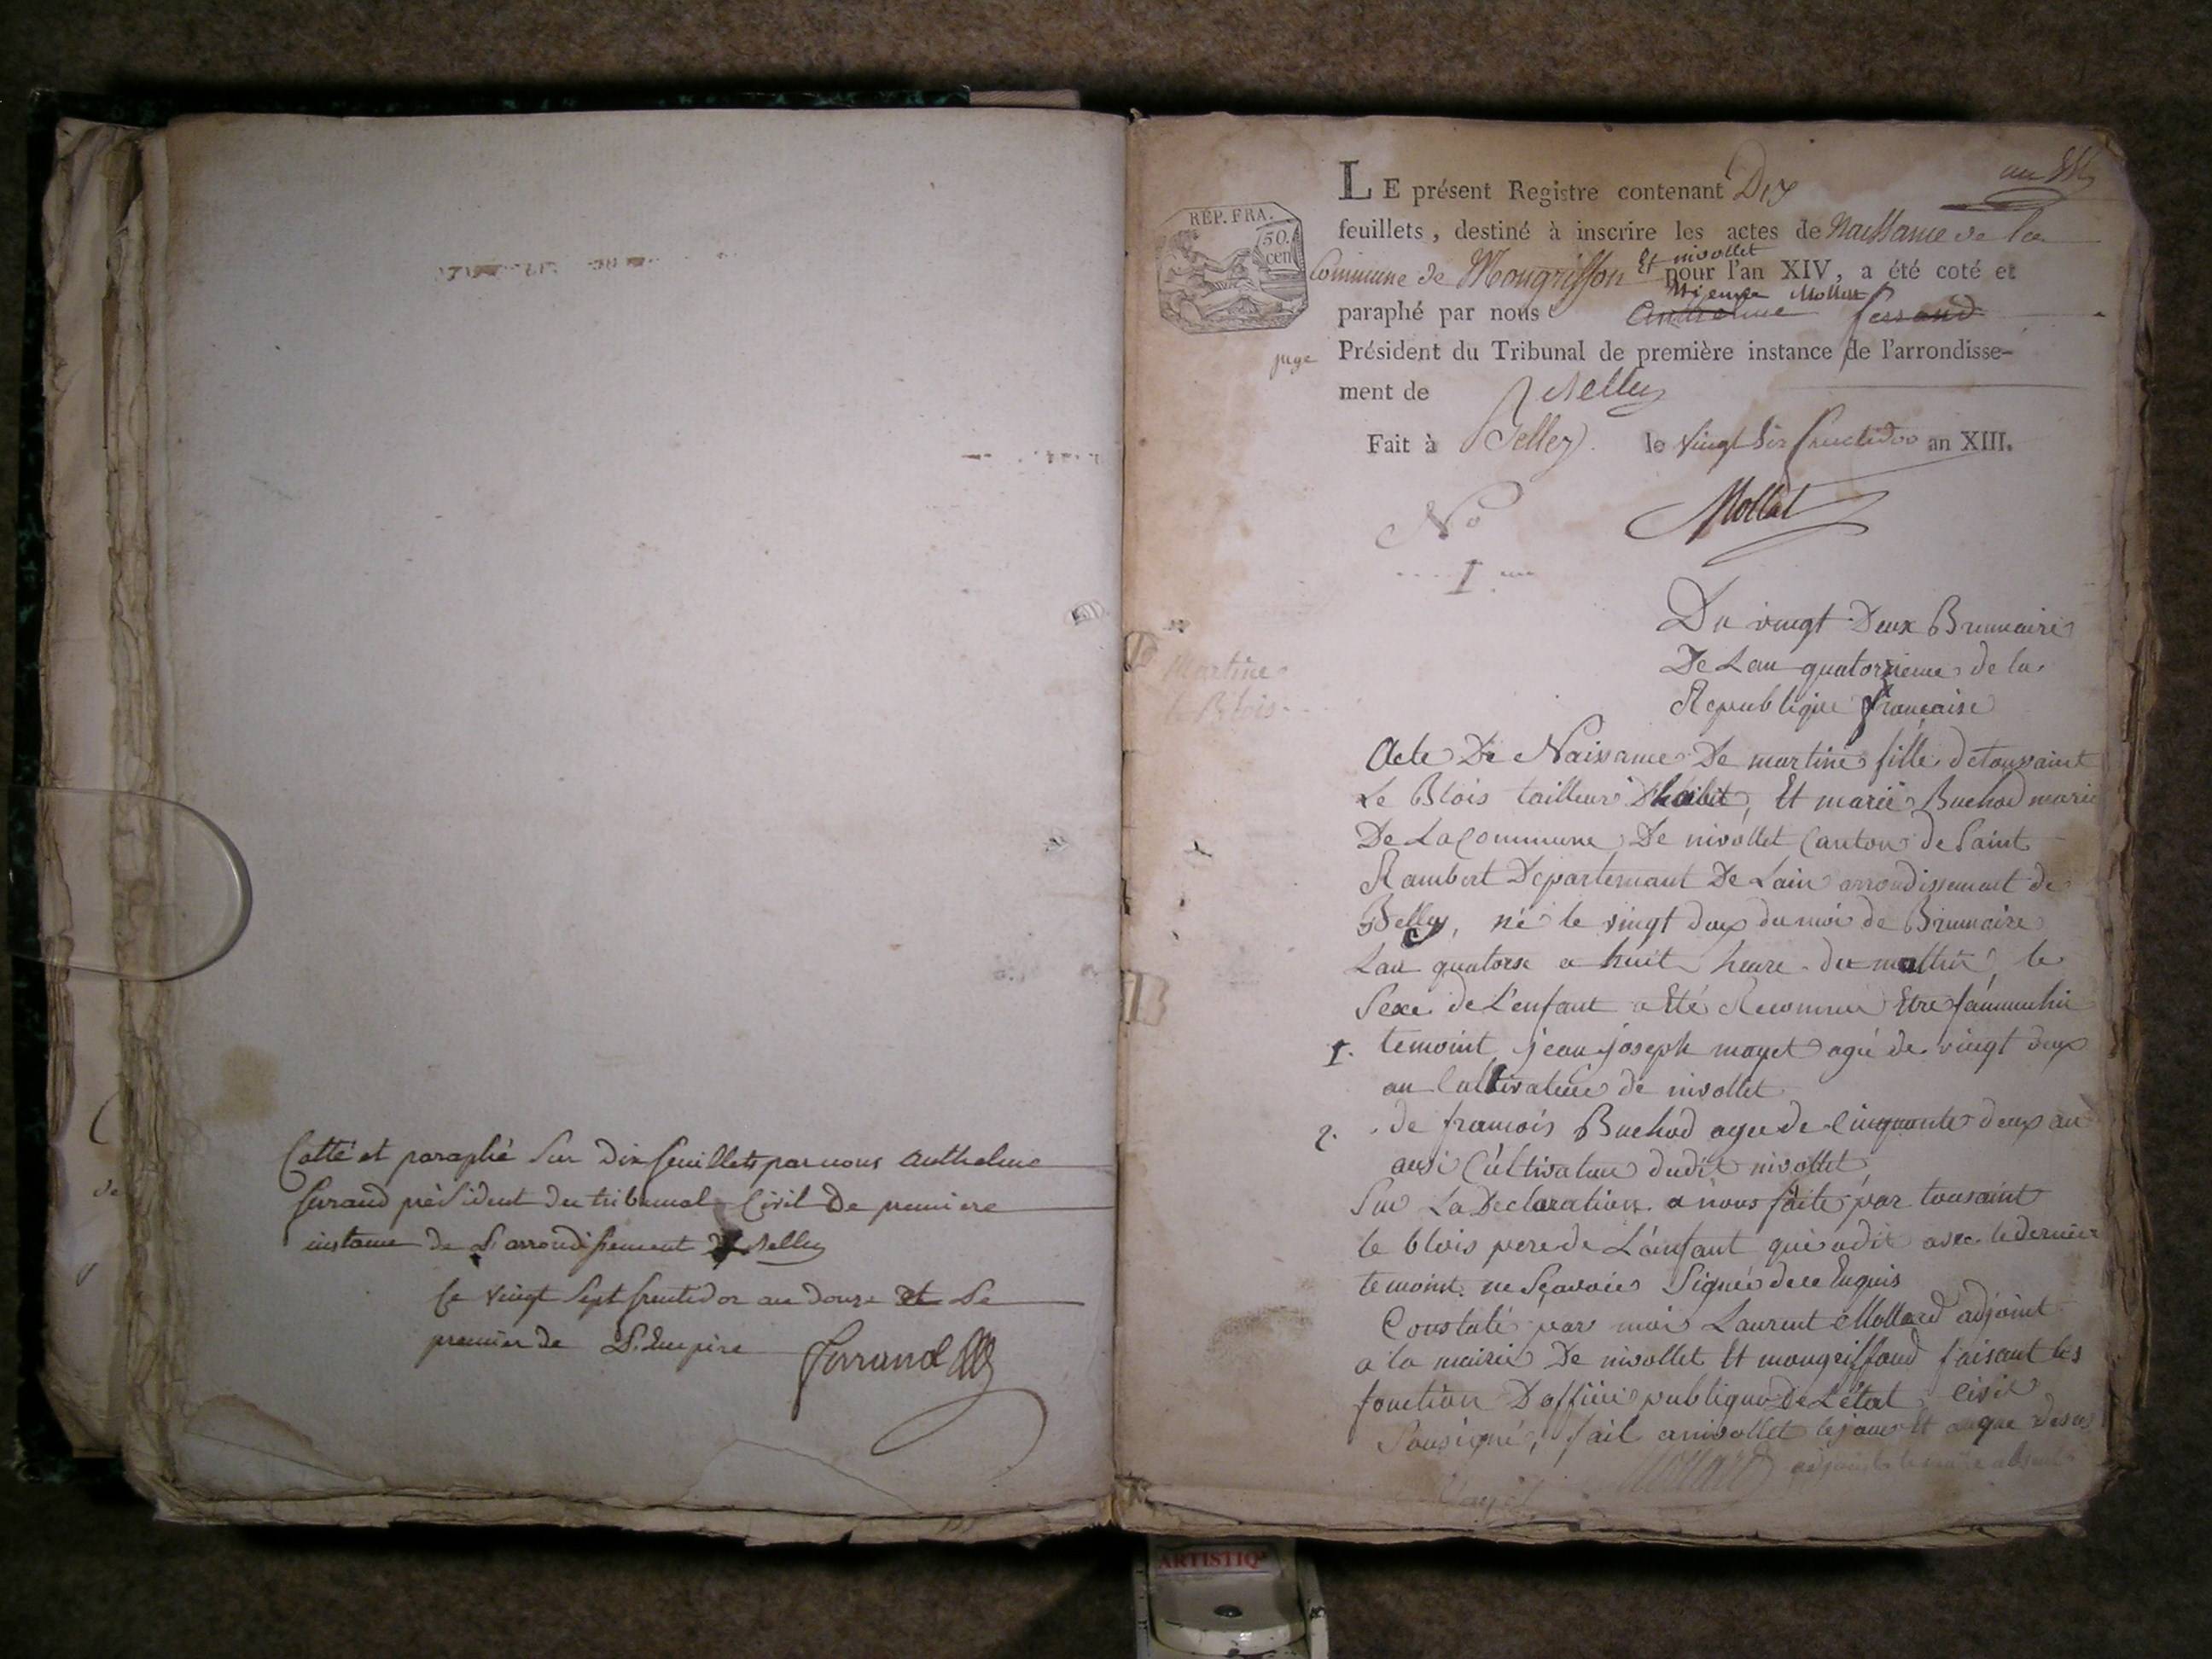 Cotté et paraphé Sur Dix feuillets par nous Anthelme
ferrand président du tribunal Civil De premiere
instance de L'arrondissement de Belley
Ce vingt Sept fructidor an douze et Le
premier de L'Empire
Ferrand
an 14
LE présent Registre contenant Dix
feuillets, destiné à inscrire les actes de Naissance de la
Commune de Mongriffon Et nivollet pour l'an XIV, a été coté et
paraphé par nous Anthelme ferrand Mollat
juge
Président du Tribunal de première instance de l'arrondisse-
ment de Belley
Fait à Belley le vingt Six fructidor an XIII.
REP. FRA.
50.
cen
Mollat
No
1
Martine
le Blois
Du vingt Deux Brumaire
De Lan quatorzieme de la
Republique française
Acte De Naissance De martine fille de tousaint
Le Blois tailleur D'habit, Et marie Buchod marié
De La Commune De nivollet Canton de Saint
Rambert Departemant De Lain arrondissemant de
Belley, né le vingt deux du moi de Brumaire
Lan quatorse a huit heure du mattin, le
Sexe de L'enfant a Eté Reconnue Etre fammelin
1. temoint jean joseph mayet agé de vingt deux
an Cultivateur de nivollet
2. de francois Buchod agée de Cinquante deux an
ausi Cultivateur dudit nivollet
Sur La Declaration a nous faite par tousaint
le blois pere de L'ainfant qui a dit avec le dernier
temoint ne Sçavoir Signer de ce Enquis
Constaté par moi Laurent Mollard adjoint
a la mairie De nivollet Et mongriffond faisant les
fonction D'officié publique De L'état Civil
Sousigné, fait a nivollet le jour et an que desus
Mayet Mollard adjoint le maire absent
ARTISTIQ